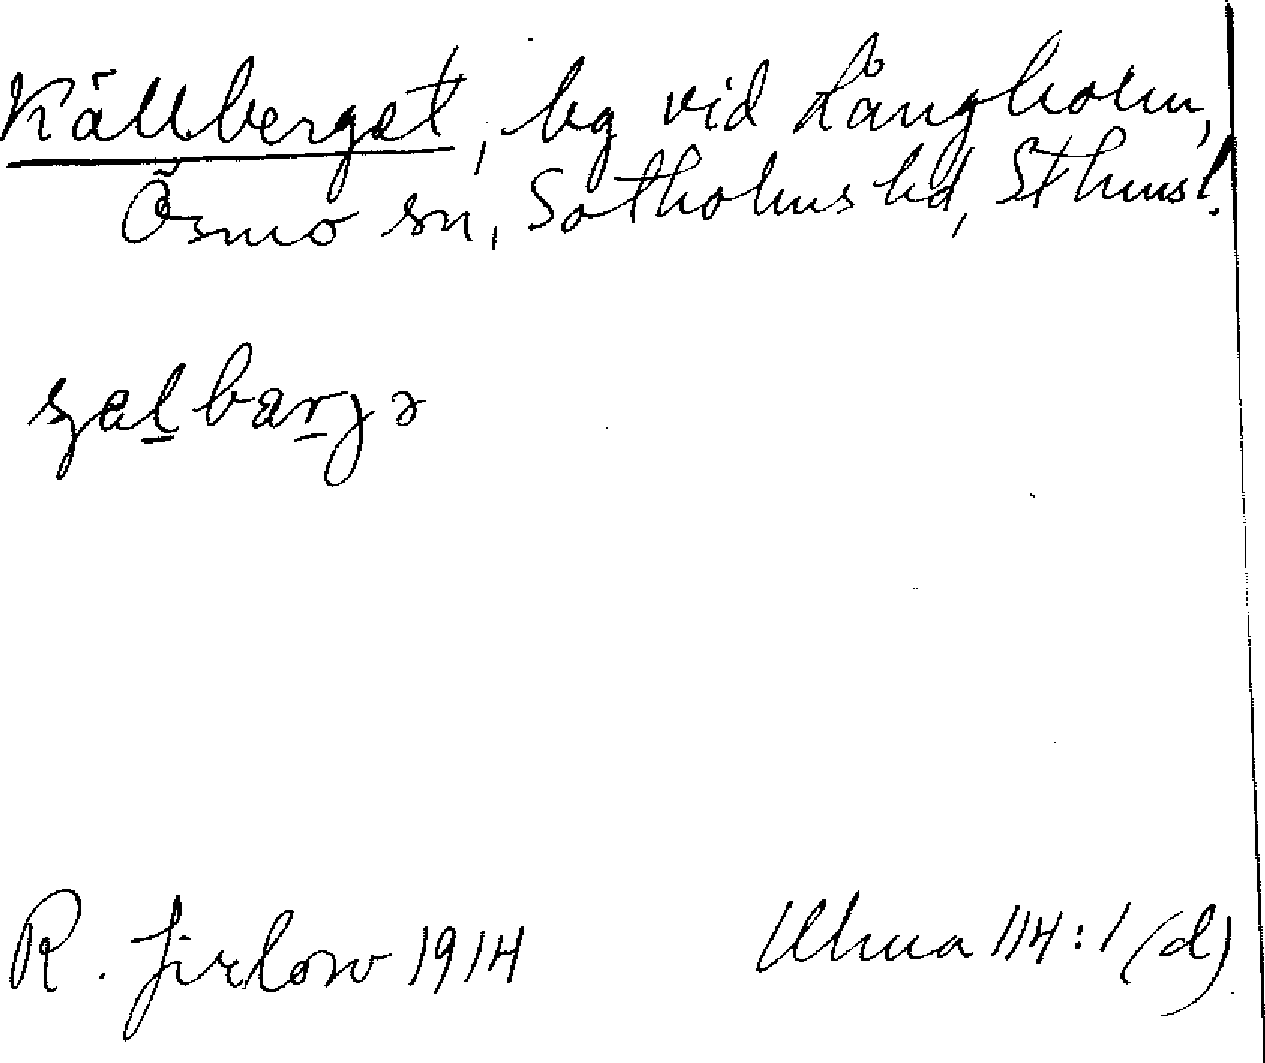 Källberget, bg vid Långholm,
Ösmo sn, Sotholms hd, Sthms l.
R. Jirlow 1914
Ulma 114:1 (d)